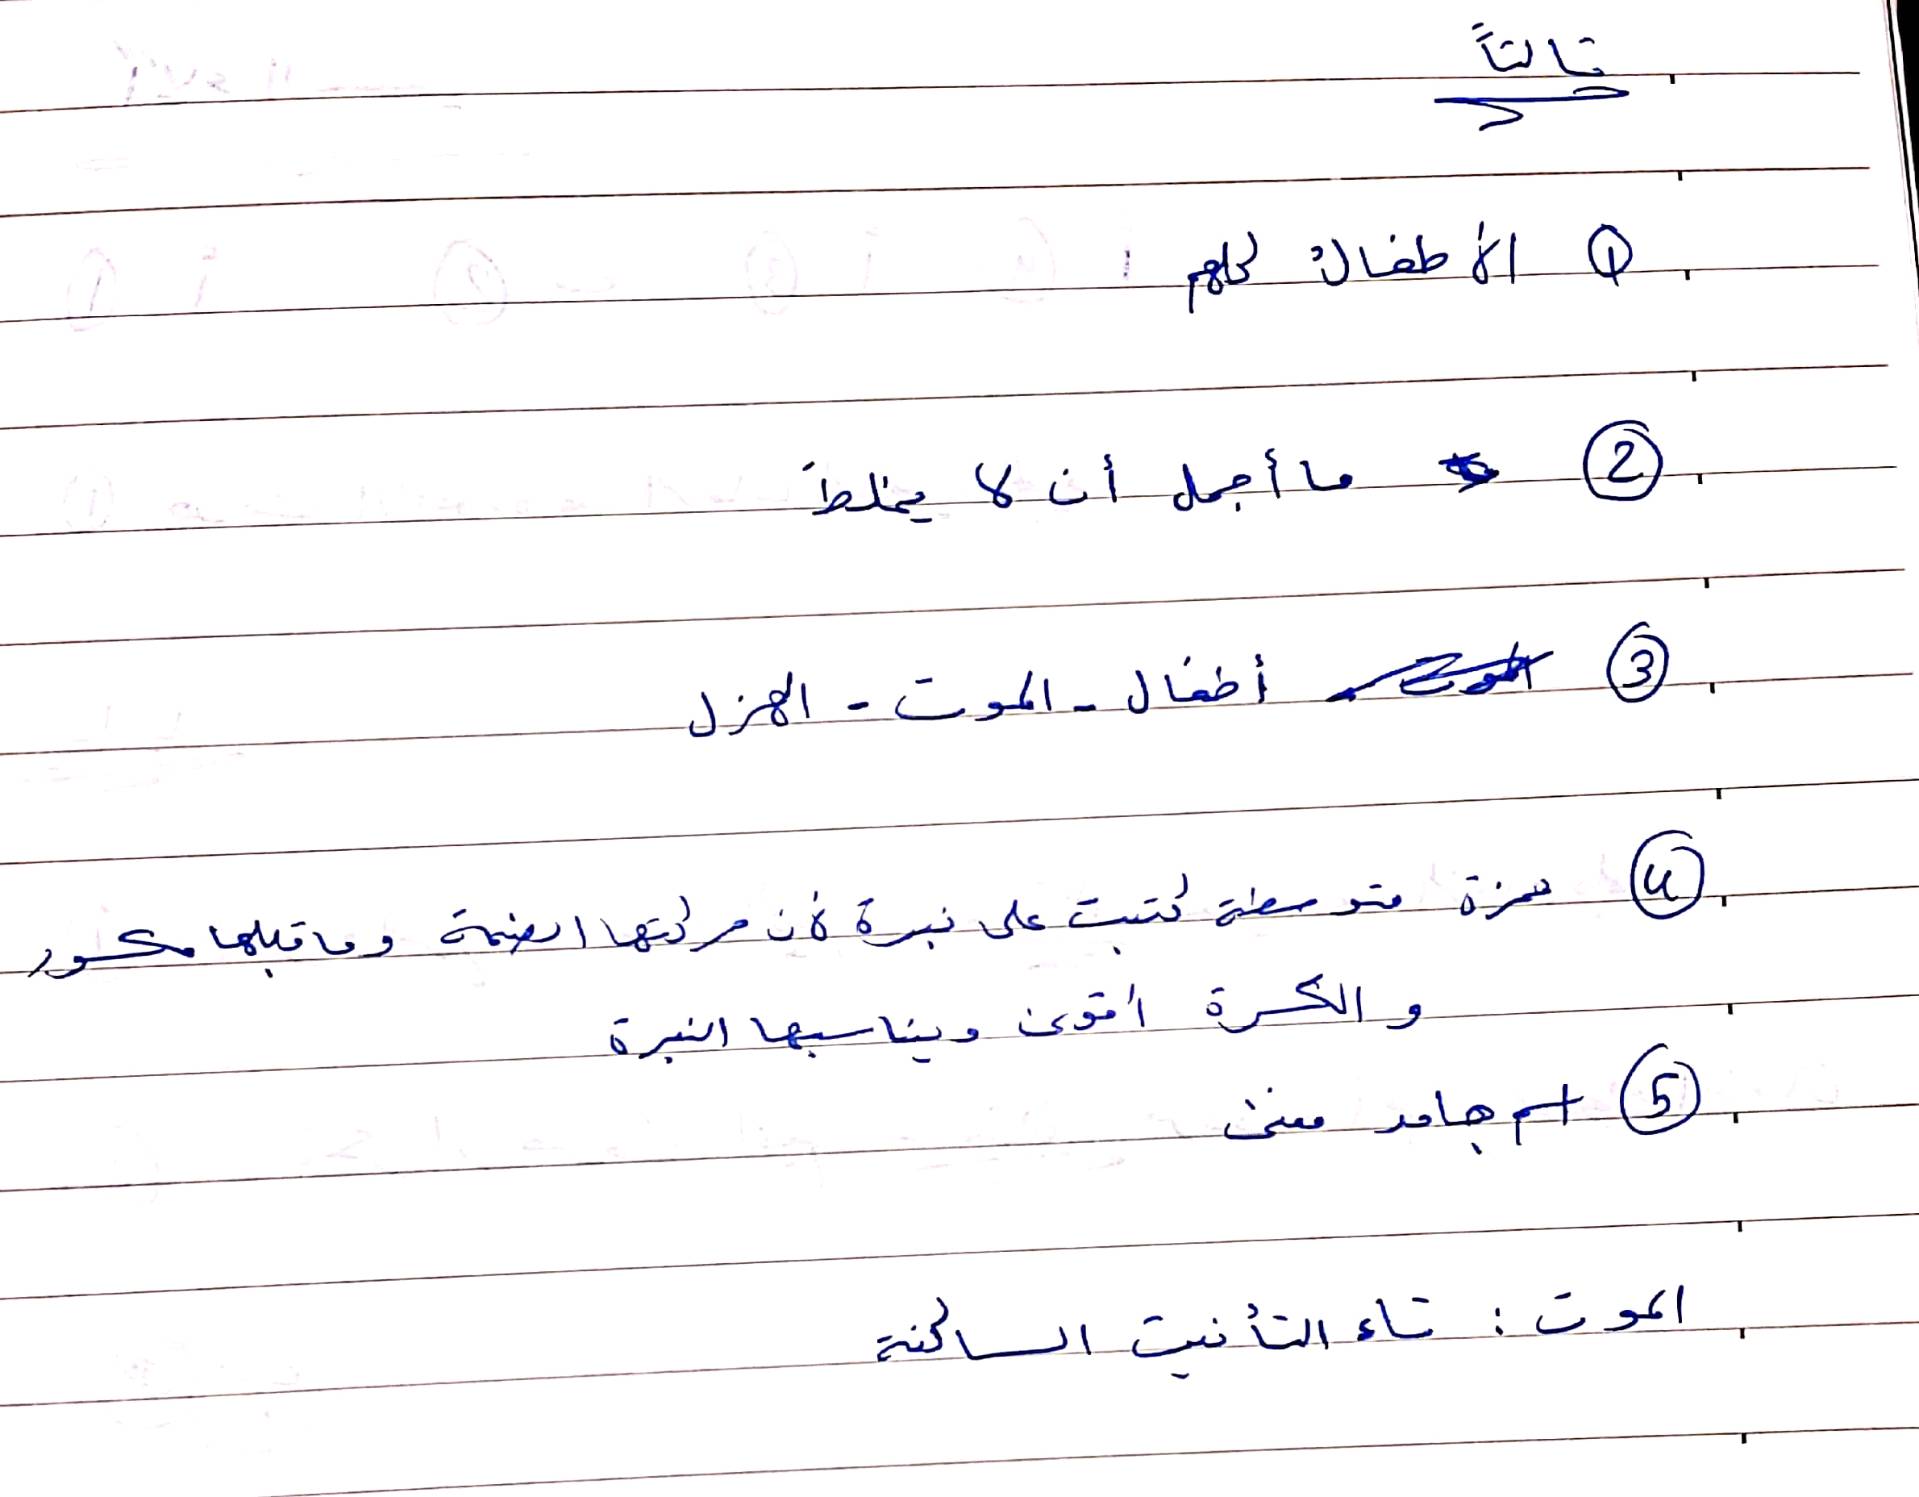 ثالثاً
① الأطفالُ كلهم
② ما أجمل أن لا يختلطَ
③ أطفال - الموت - الهزل
④ همزة متوسطة كتبت على نبرة لأن حركتها الضمة وما قبلها مكسور
والكسرة أقوى ويناسبها النبرة
⑤ اسم جامد معنى
الموت : تاء التأنيث الساكنة